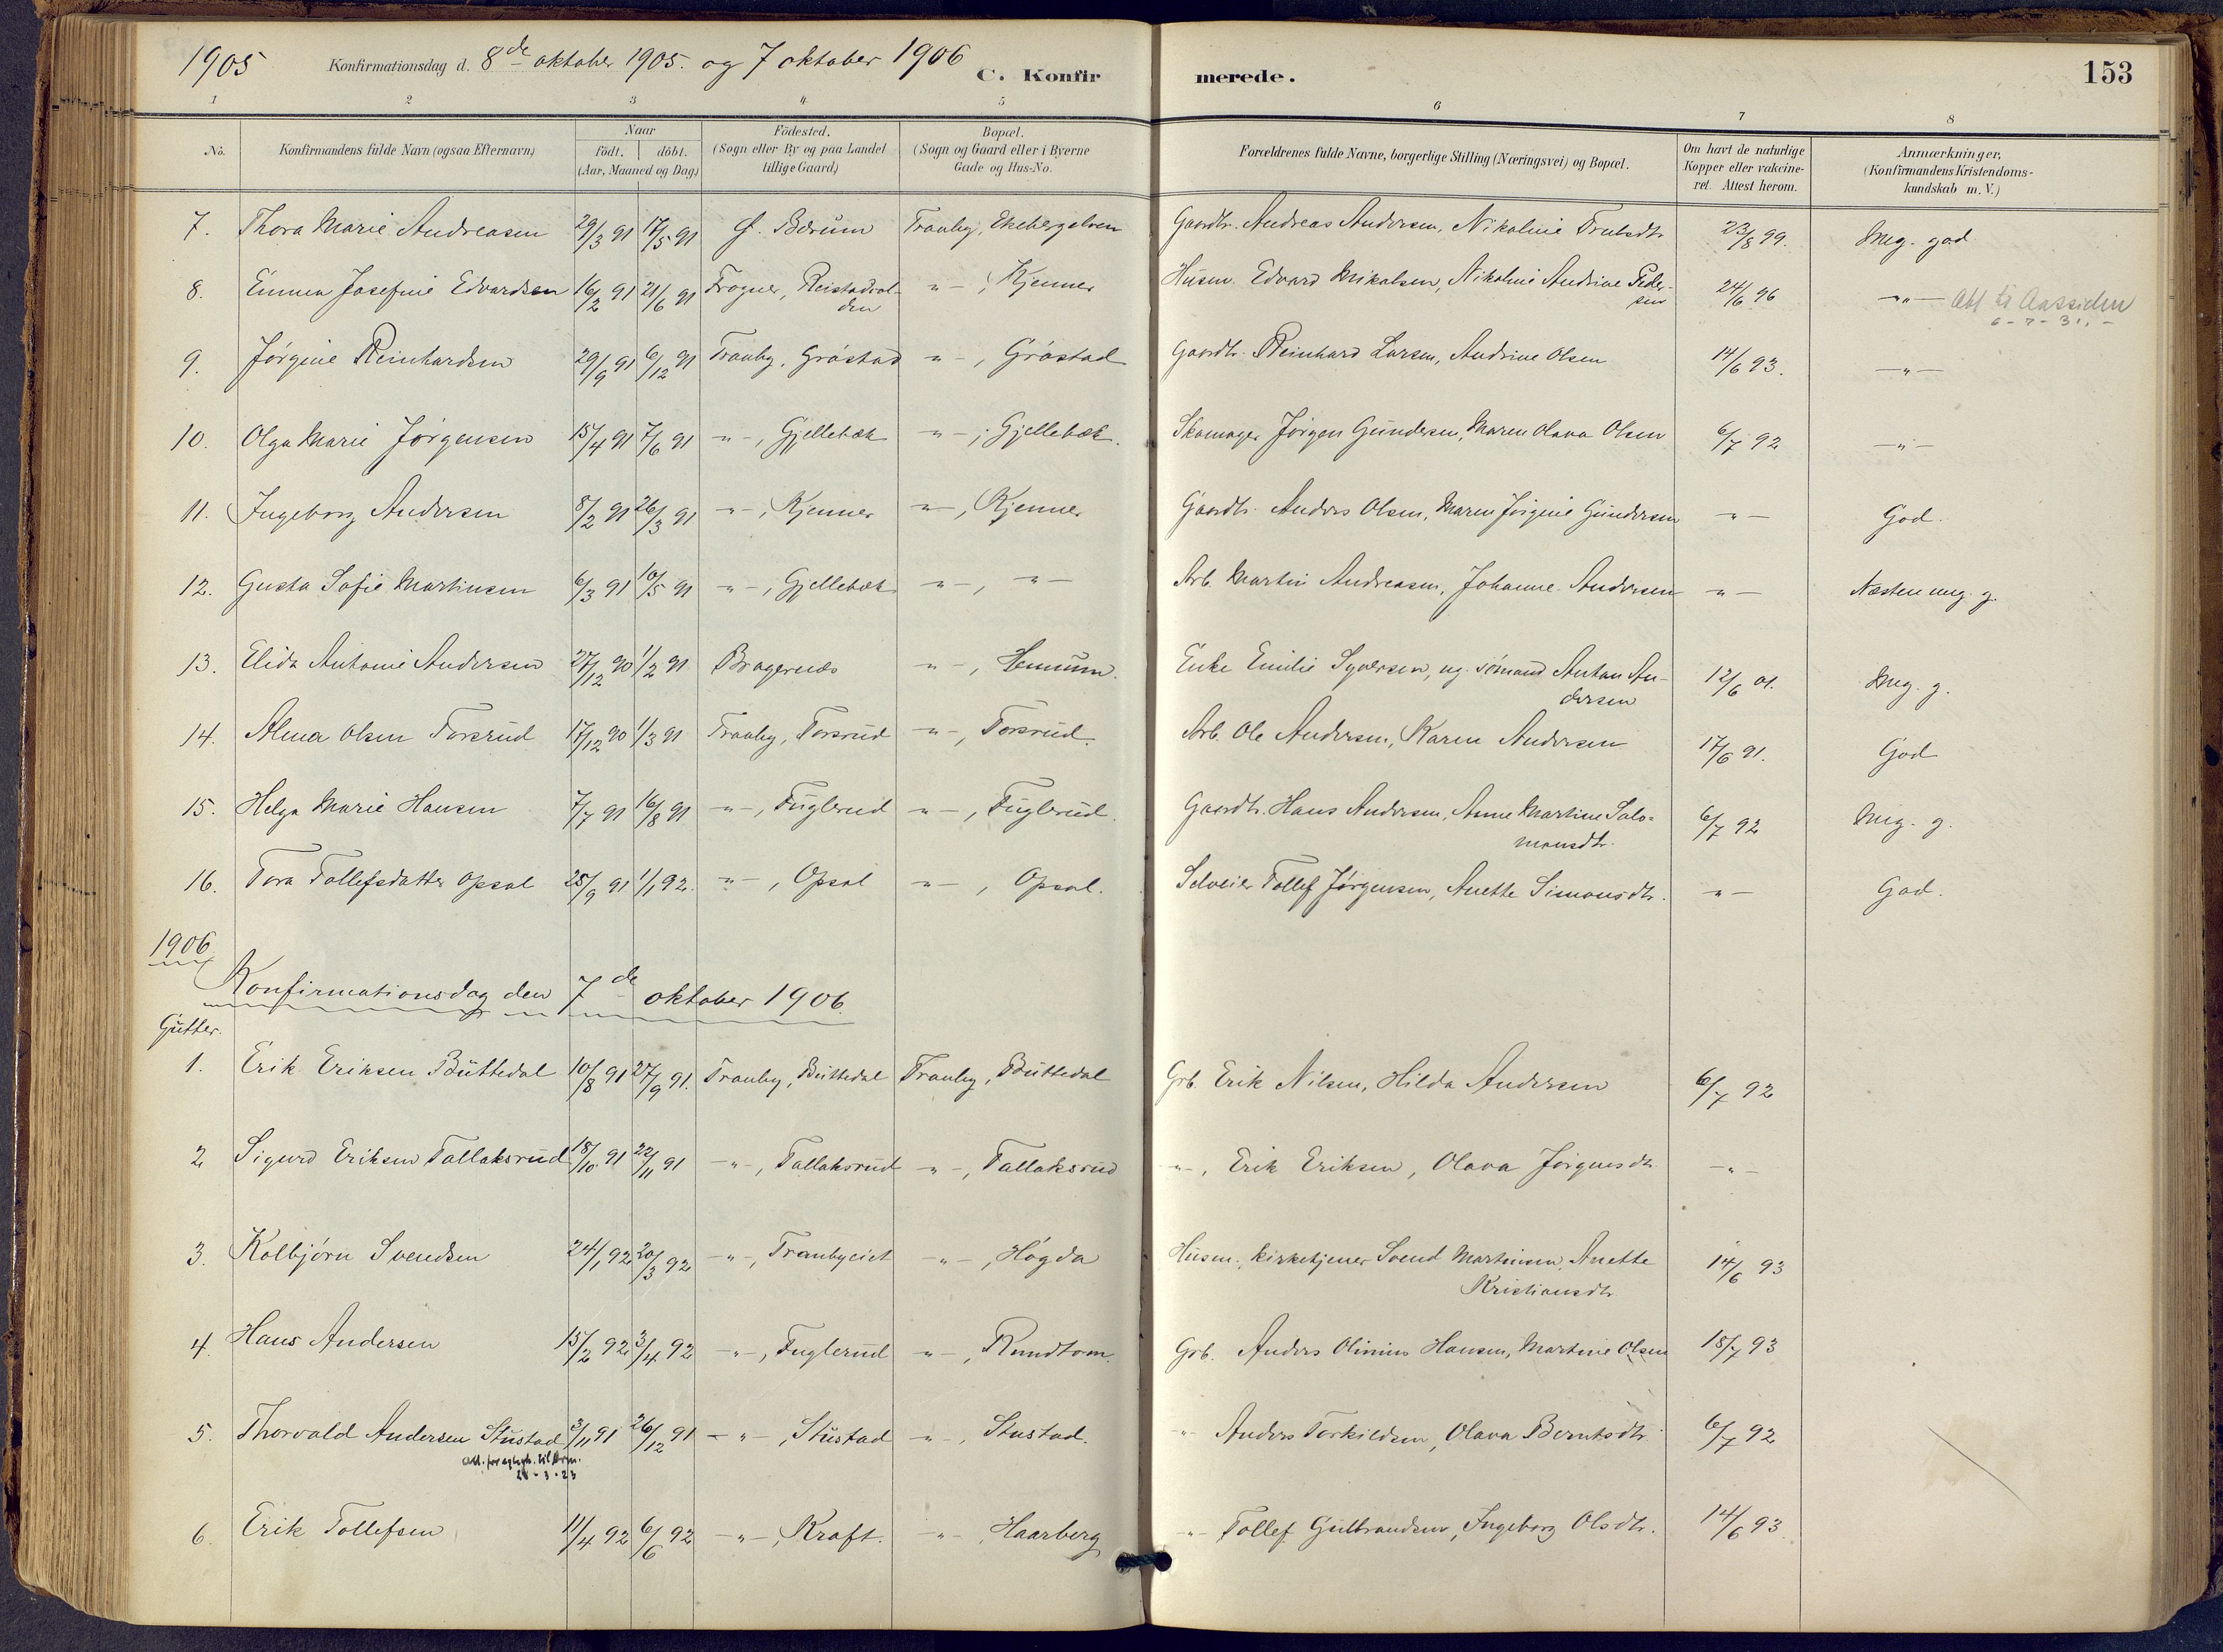 1905 Konfirmationsdag d. 8de oktober 1905. og 7 oktober 1906 C. Konfirmerede. 153
1 2 3 4 5 6 7 8
No. Konfirmandens fulde Navn (ogsaa Efternavn) Naar Födt. döbt. (Aar, Maaned og Dag) Födested. (Sogn eller By og paa Landet tillige Gaard) Bopæl. (Sogn og Gaard eller i Byerne Gade og Hus-No. Forældrenes fulde Navne, borgerlige Stilling (Næringsvei) og Bopæl. Om havt de naturlige Kopper eller vakcineret. Attest herom. Anmærkninger. (Konfirmandens Kristendomskundskab m. V.)
7. Thora Marie Andreasen 29/3 91 17/5 91 Ø. Bærum Tranby, Gaardbr. Andreas Andersen, Nikoline Trulsdtr 23/8 99. Meg. god
8. Emma Josefine Edvardsen 16/2 91 21/6 91 Frogner, -"-, Kjenner Husm. Edvard Mikalsen, Nikoline Andrine Peder-
den sen 24/6 96 -"- Att til Aassiden
6-7-31.-
9. Jörgine Reinhardsen 29/9 91 6/12 91 Tranby, Gröstad -"-, Gröstad Gaardbr. Reinhard Larsen, Andrine Olsen 14/6 93. -"-
10. Olga Marie Jörgensen 15/4 91 7/6 91 -"-, Gjellebæk -"-, Gjellebæk. Skomager Jörgen Gundersen, Maren Olava Olsen 6/7 92 -"-
11. Ingeborg Andersen 8/2 91 26/3 91 -"-, Kjenner -"-, Kjenner Gaardbr. Anders Olsen, Maren Jörgine Gundersen -"- God.
12. Gusta Sofie Martinsen 6/3 91 10/5 91 -"-, Gjellebæk -"-, -"- Arb. Martin Andreasen, Johanne Andersen -"- Næsten meg. g.
13. Elida Antonie Andersen 27/12 90 1/2 91 Bragernæs -"-, Hennum. Enke Emilie Syversen, og sömand Anton An-
dersen 12/6 01. Meg. g.
14. Alma Olsen Torsrud 17/12 90 1/3 91 Tranby, Torsrud -"-, Torsrud. Arb. Ole Andersen, Karen Andersen 17/6 91. God
15. Helga Marie Hansen 7/7 91 16/8 91 -"-, Fuglerud -"-, Fuglerud. Gaardbr. Hans Andersen, Anne Martine Salo-
monsdtr. 6/7 92 Meg. g.
16. Tora Tollefsdatter Opsal 25/9 91 1/1 92. -"-, Opsal -"-, Opsal. Selveier Tollef Jörgensen, Anette Simonsdtr. -"- God.
1906
Konfirmationsdag den 7de oktober 1906.
Gutter.
1. Erik Eriksen Büttedal 10/8 91 27/9 91. Tranby, Büttedal Tranby, Büttedal Grb. Erik Nilsen, Hilda Andersen 6/7 92
2 Sigurd Eriksen Tallaksrud 18/10 91 22/11 91 -"-, Tallaksrud -"-, Tallaksrud -"-, Erik Eriksen, Olava Jörgensdtr. -"-
3. Kolbjörn Svendsen 24/1 92 20/3 92 -"-, Tranbyeiet -"-, Högda Husm., kirketjener Svend Martinsen, Anette
Kristiansdtr 14/6 93
4. Hans Andersen 15/2 92 3/4 92 -"-, Fuglerud -"-, Rundtom. Grb. Anders Olinius Hansen, Martine Olsen 18/7 93
5. Thorvald Andersen Stustad 3/11 91 26/12 91 -"-, Stustad -"-, Stustad. -"- Anders Torkildsen, Olava Berntsdtr. 6/7 92
Att. for til Drm.
6. Erik Tollefsen 11/4 92 6/6 92 -"-, Kraft. -"-, Haarberg -"- Tollef Gulbrandsen, Ingeborg Olsdtr. 14/6 93